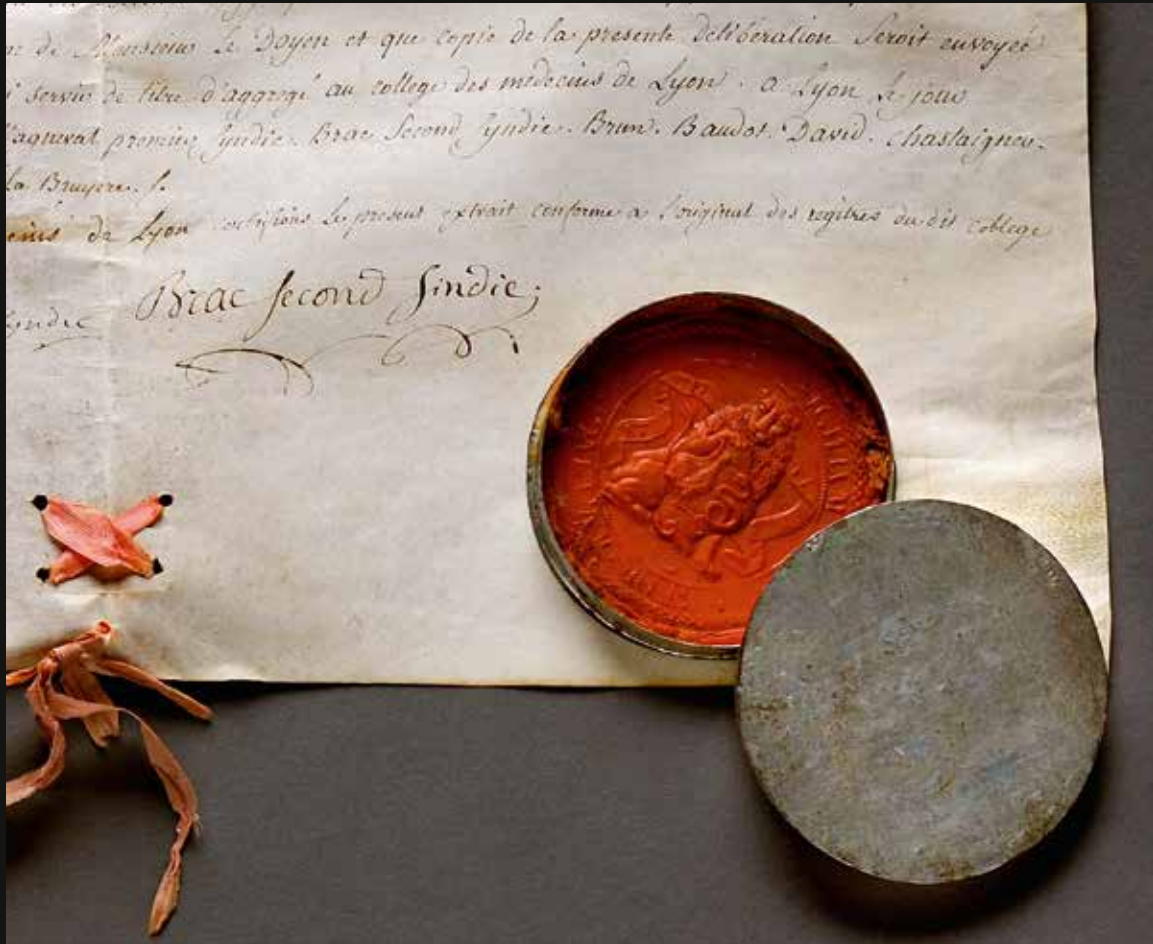 de Monsieur Le Doyen et que copie de la presente deliberation Seroit envoyée
servir de titre d'aggregé au college des medecins de Lyon. a Lyon Le jour
premier Syndic. Brac Second Syndic. Brun. Baudot. David. Chastaignier.
la Bruyere. /.
de Lyon certifions Le present extrait conforme a l'original des regitres du dit college
Syndic Brac Second Sindic;